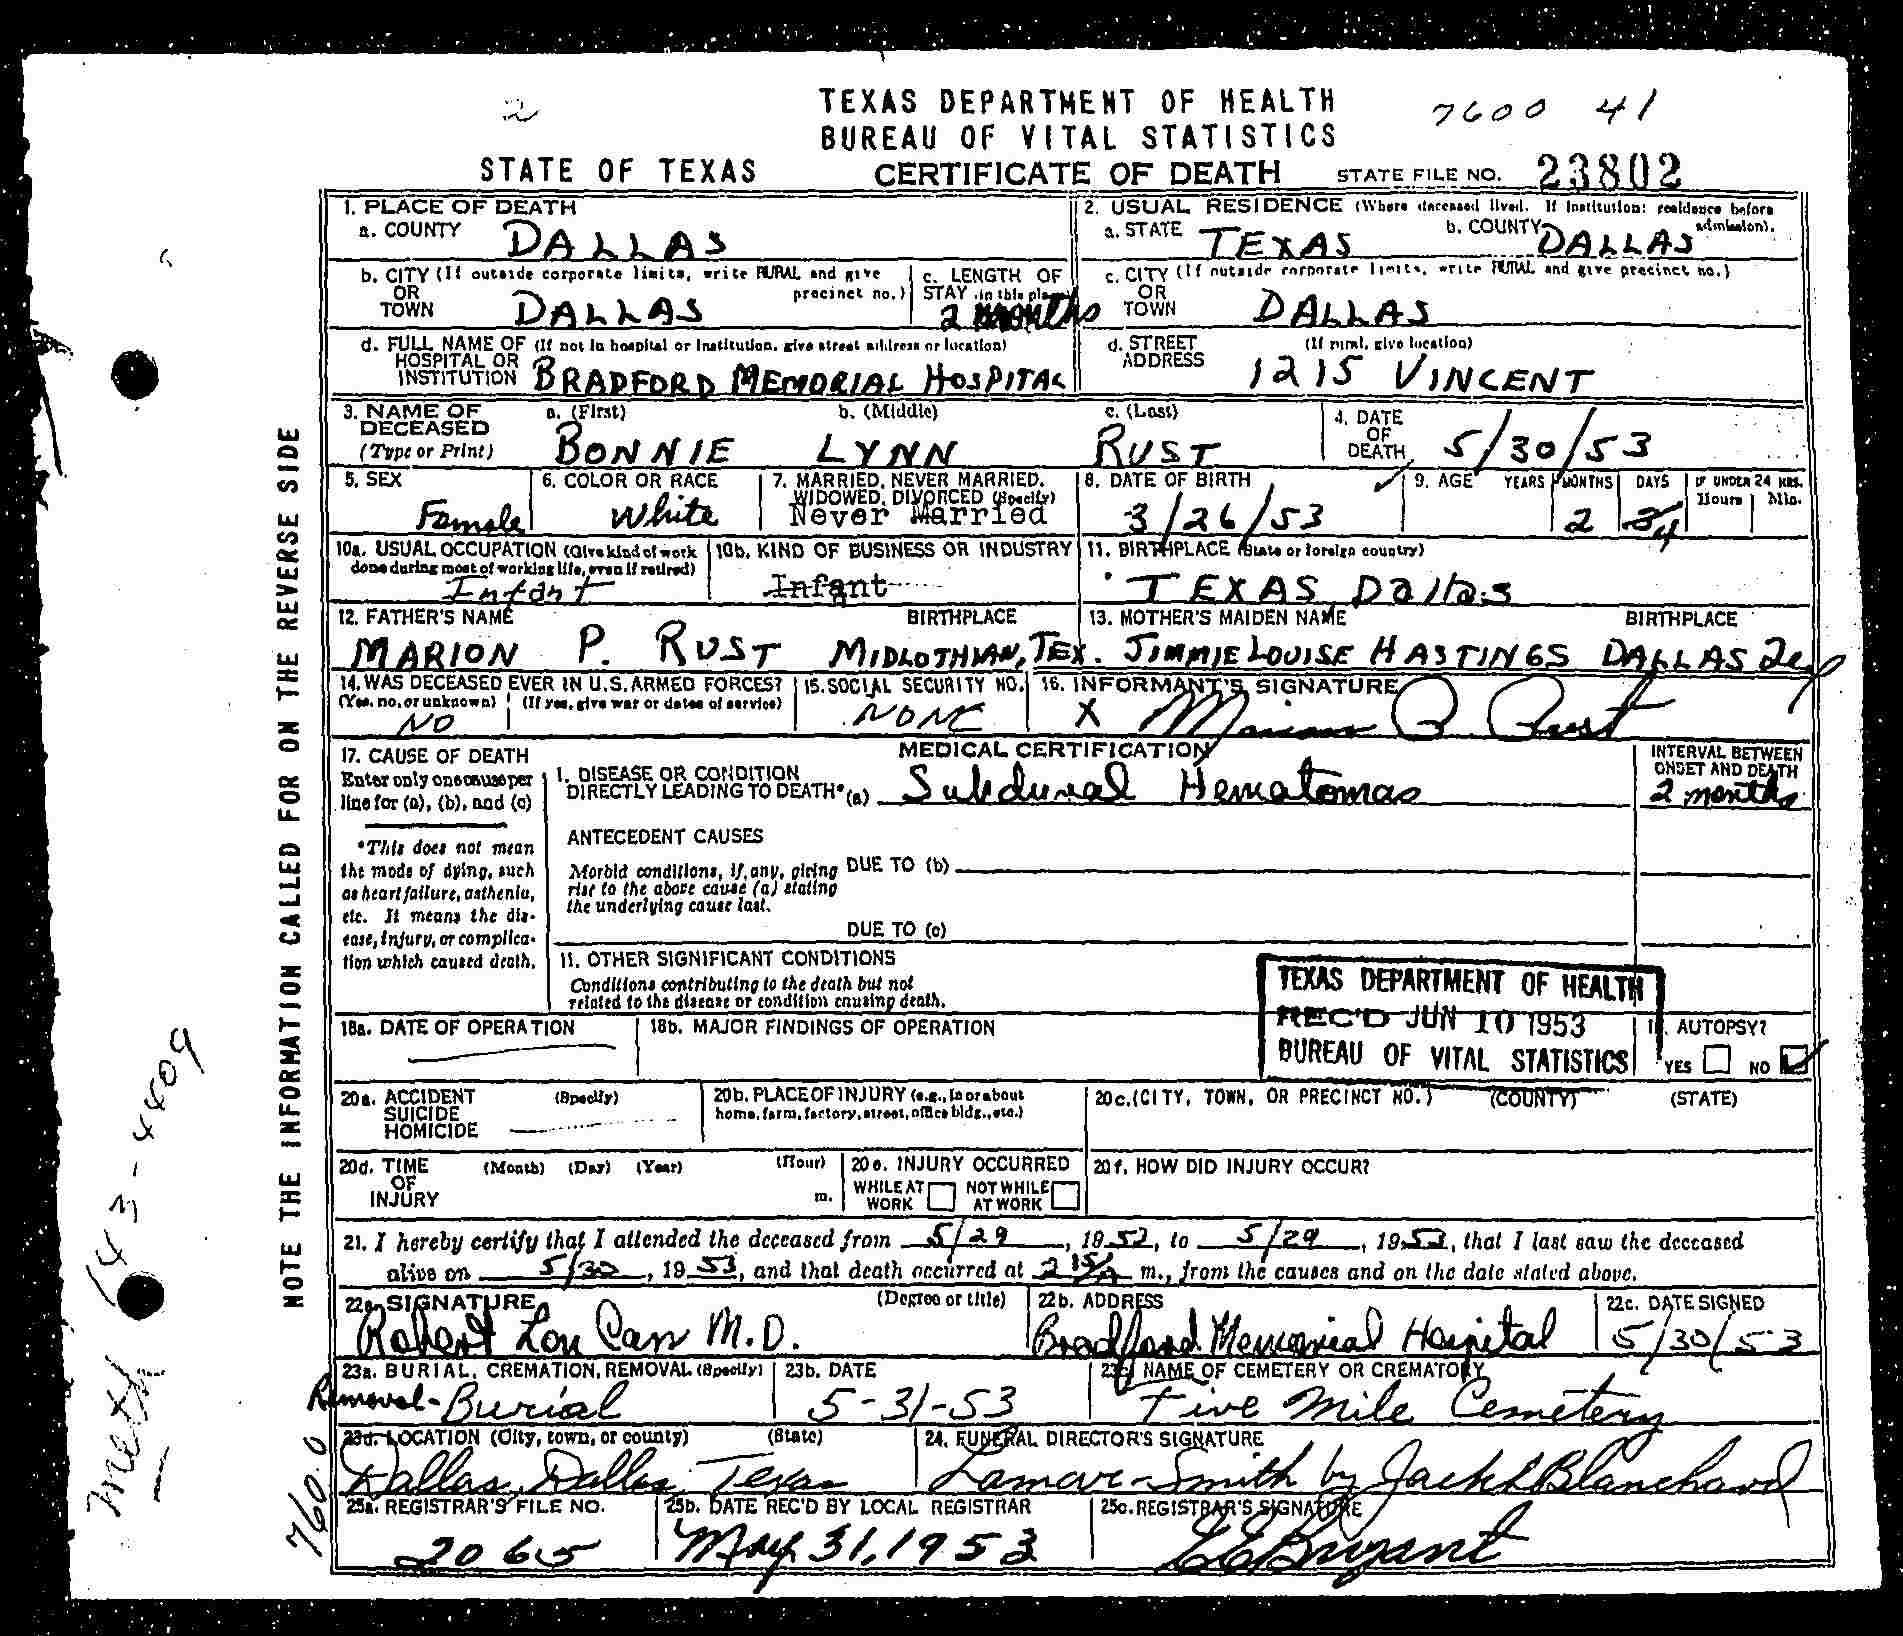 2
TEXAS DEPARTMENT OF HEALTH
7600 41
BUREAU OF VITAL STATISTICS
STATE OF TEXAS CERTIFICATE OF DEATH STATE FILE NO. 23802
1. PLACE OF DEATH
a. COUNTY DALLAS
2. USUAL RESIDENCE (Where deceased lived. If institution: residence before admission).
a. STATE TEXAS b. COUNTY DALLAS
b. CITY (If outside corporate limits, write RURAL and give precinct no.)
OR
TOWN DALLAS
c. LENGTH OF
STAY (in this place)
2 months
c. CITY (If outside corporate limits, write RURAL and give precinct no.)
OR
TOWN DALLAS
d. FULL NAME OF (If not in hospital or institution, give street address or location)
HOSPITAL OR
INSTITUTION BRADFORD MEMORIAL HOSPITAL
d. STREET (If rural, give location)
ADDRESS 1215 VINCENT
3. NAME OF DECEASED (Type or Print)
a. (First) b. (Middle) c. (Last)
BONNIE LYNN RUST
4. DATE OF DEATH 5/30/53
5. SEX
Female
6. COLOR OR RACE
White
7. MARRIED, NEVER MARRIED, WIDOWED, DIVORCED (Specify)
Never Married
8. DATE OF BIRTH
3/26/53
9. AGE YEARS MONTHS DAYS IF UNDER 24 HRS. Hours Min.
2 4
10a. USUAL OCCUPATION (Give kind of work done during most of working life, even if retired)
Infant
10b. KIND OF BUSINESS OR INDUSTRY
Infant
11. BIRTHPLACE (State or foreign country)
TEXAS Dallas
12. FATHER'S NAME BIRTHPLACE
MARION P. RUST MIDLOTHIAN, TEX.
13. MOTHER'S MAIDEN NAME BIRTHPLACE
JIMMIE LOUISE HASTINGS DALLAS Tex
14. WAS DECEASED EVER IN U.S. ARMED FORCES?
(Yes, no, or unknown) (If yes, give war or dates of service)
NO
15. SOCIAL SECURITY NO.
NONE
16. INFORMANT'S SIGNATURE
X Marion P. Rust
17. CAUSE OF DEATH
Enter only one cause per line for (a), (b), and (c)
*This does not mean the mode of dying, such as heart failure, asthenia, etc. It means the disease, injury, or complication which caused death.
MEDICAL CERTIFICATION
INTERVAL BETWEEN ONSET AND DEATH
I. DISEASE OR CONDITION
DIRECTLY LEADING TO DEATH* (a) Subdural Hematomas
2 months
ANTECEDENT CAUSES
Morbid conditions, if any, giving rise to the above cause (a) stating the underlying cause last.
DUE TO (b)
DUE TO (c)
II. OTHER SIGNIFICANT CONDITIONS
Conditions contributing to the death but not related to the disease or condition causing death.
TEXAS DEPARTMENT OF HEALTH
REC'D JUN 10 1953
BUREAU OF VITAL STATISTICS
18a. DATE OF OPERATION
18b. MAJOR FINDINGS OF OPERATION
AUTOPSY?
YES NO
20a. ACCIDENT (Specify)
SUICIDE
HOMICIDE
20b. PLACE OF INJURY (e.g., in or about home, farm, factory, street, office bldg., etc.)
20c. (CITY, TOWN, OR PRECINCT NO.) (COUNTY) (STATE)
20d. TIME (Month) (Day) (Year) (Hour)
OF
INJURY m.
20e. INJURY OCCURRED
WHILE AT WORK NOT WHILE AT WORK
20f. HOW DID INJURY OCCUR?
21. I hereby certify that I attended the deceased from 5/29, 1953, to 5/29, 1953, that I last saw the deceased
alive on 5/30, 1953, and that death occurred at 2 15/A m., from the causes and on the date stated above.
22a. SIGNATURE (Degree or title)
Robert Lon Carr M.D.
22b. ADDRESS
Bradford Memorial Hospital
22c. DATE SIGNED
5/30/53
23a. BURIAL, CREMATION, REMOVAL (Specify)
Removal-Burial
23b. DATE
5-31-53
23c. NAME OF CEMETERY OR CREMATORY
Five Mile Cemetery
23d. LOCATION (City, town, or county) (State)
Dallas, Dallas, Texas
24. FUNERAL DIRECTOR'S SIGNATURE
Lamar-Smith by Jack L Blanchard
25a. REGISTRAR'S FILE NO.
2065
25b. DATE REC'D BY LOCAL REGISTRAR
May 31, 1953
25c. REGISTRAR'S SIGNATURE
E E Bryant
NOTE THE INFORMATION CALLED FOR ON THE REVERSE SIDE
143-4409
meth
760.0